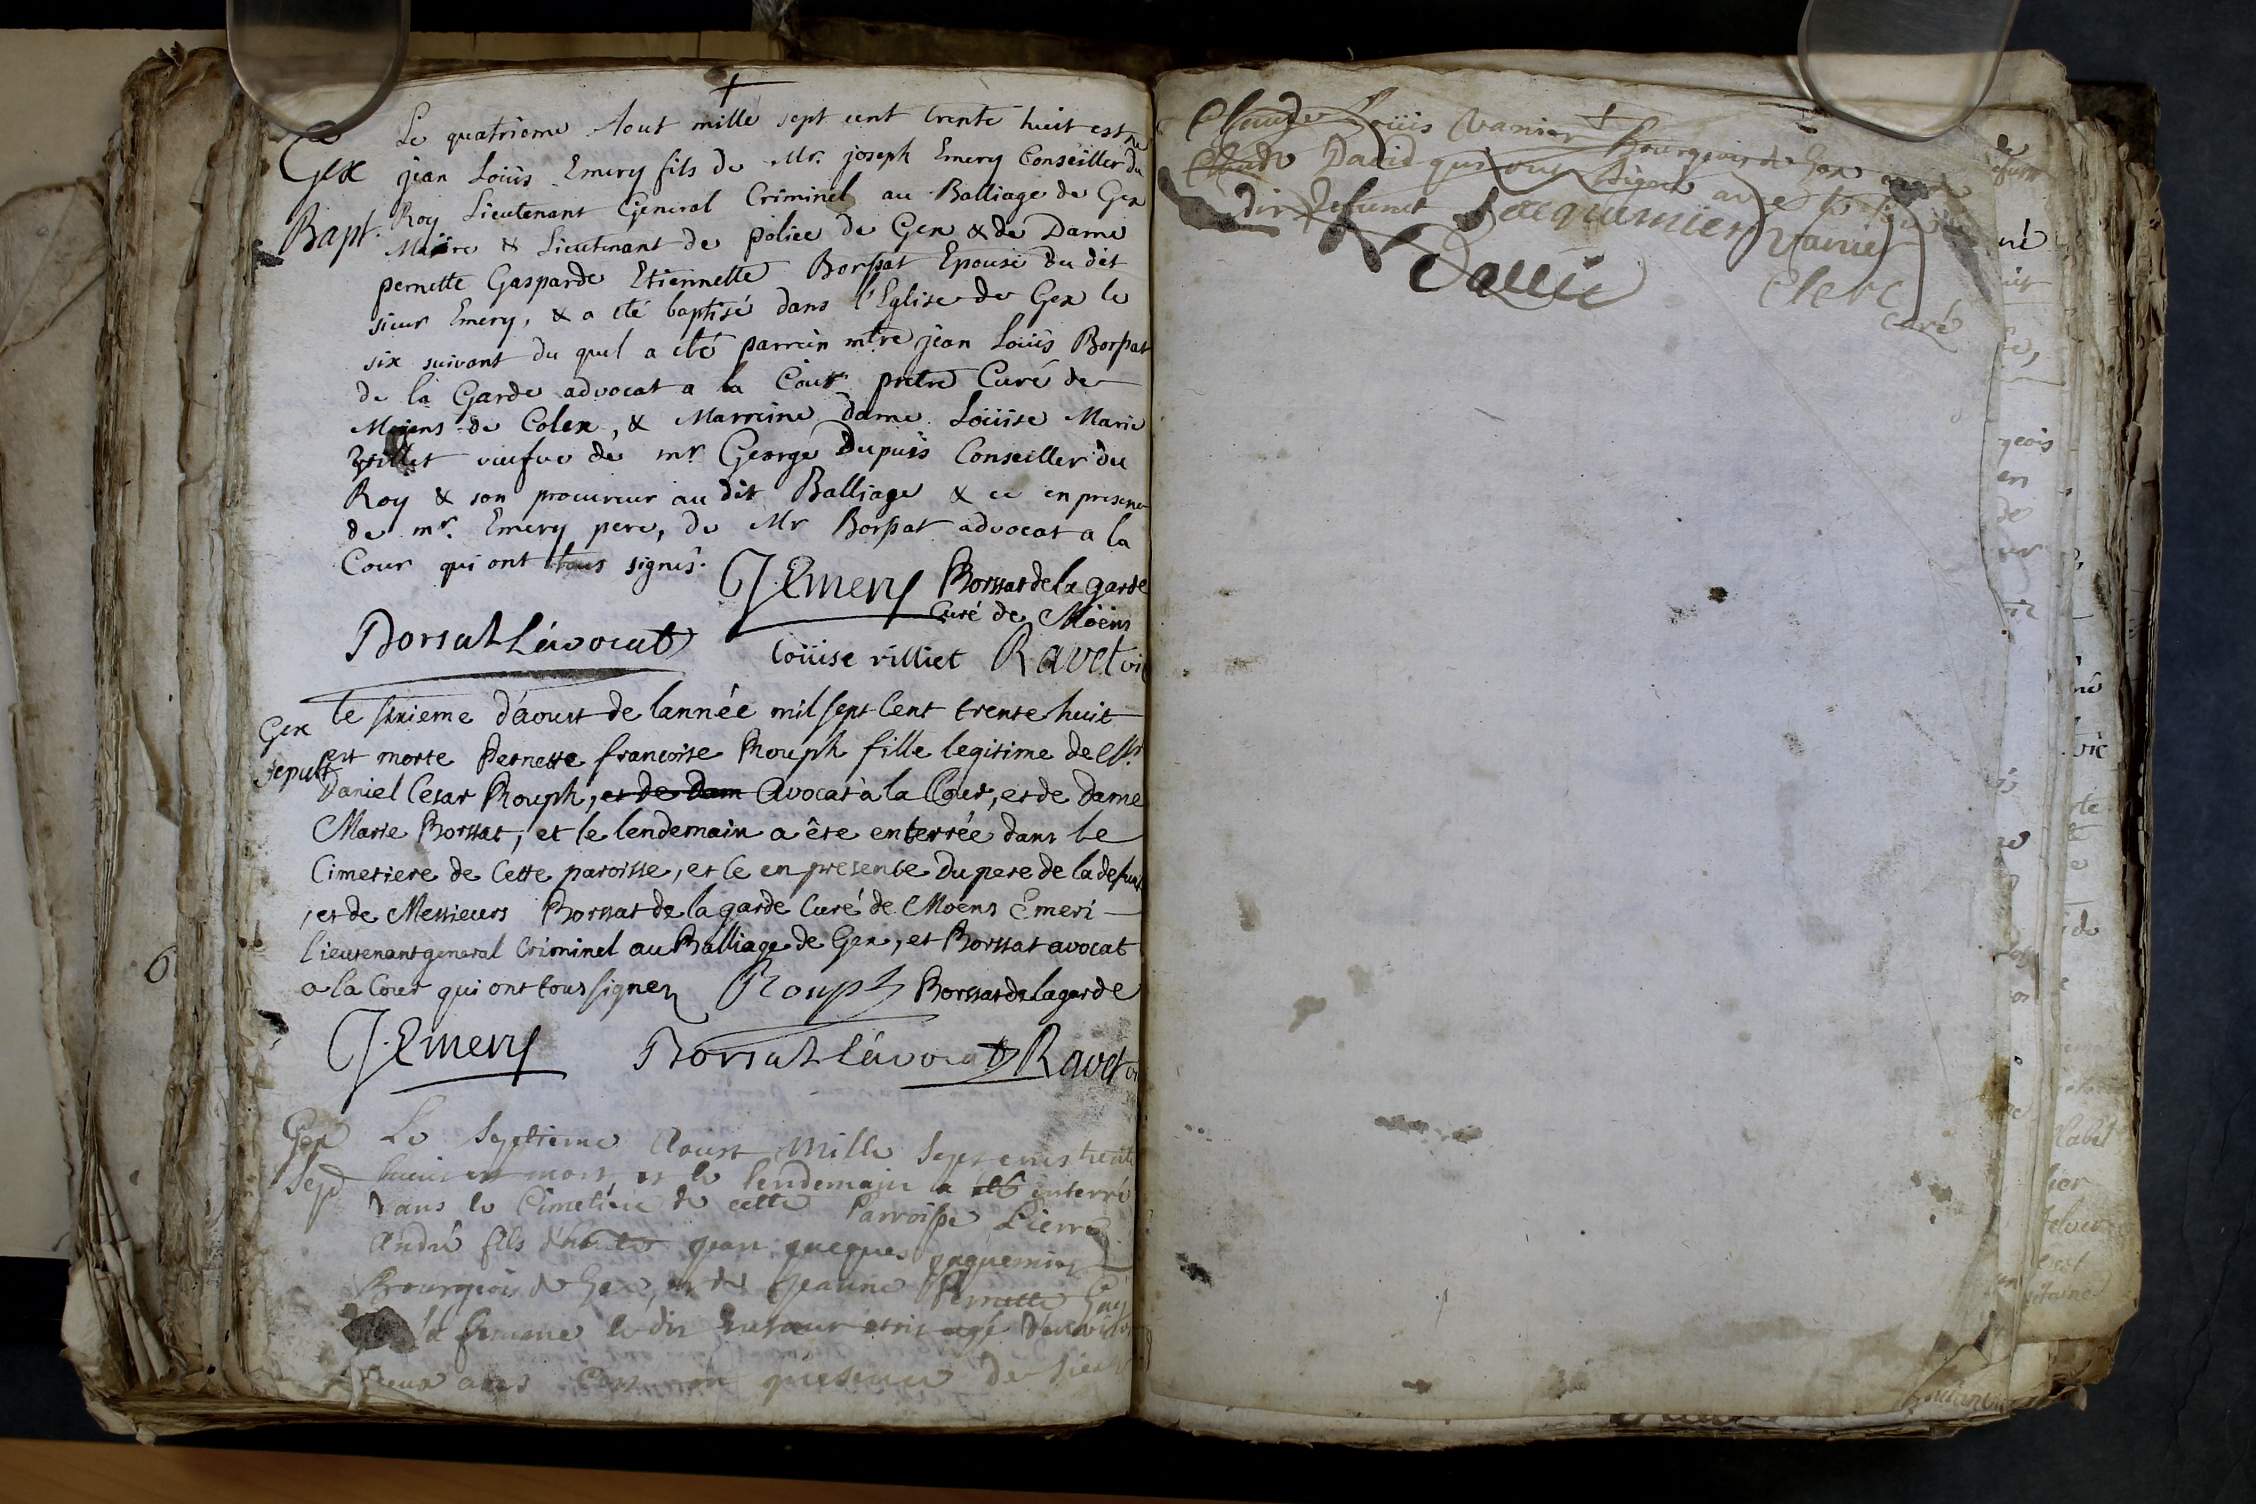 Gex
Bapt.
Le quatrieme Aout mille sept cent trente huit est né
jean Loüis Emery fils de Mr. joseph Emery Conseiller du
Roy Lieutenant General Criminel au Balliage de Gex
Maire & Lieutenant de police de Gex & de Dame
pernette Gasparde Etiennette Borssat Epouse du dit
sieur Emery, & a eté baptisé dans l'Eglise de Gex le
six suivant du quel a eté parrein mtre jean Loüis Borssat
de la Garde advocat a la Cour pretre Curé de
Moëns de Colex, & Marreine dame Loüise Marie
veufve de mr George Dupuis Conseiller du
Roy & son procureur au dit Balliage & ce en presence
de mr. Emery pere, de Mr Borssat advocat a la
Cour qui ont tous signés.
J. Emery Borssat de la garde
Curé de Moëns
Borsat l'avocat
loüise rilliet Ravet vic
Gex
Sepult.
le sixieme d'aoust de lannée mil sept Cent trente huit
est morte Pernette francoise Rouph fille legitime de Mr.
Daniel Cesar Rouph, et de Dam Avocat à la Cour, et de Dame
Marie Borssat, et le lendemain a êté enterrée dans le
Cimetiere de Cette paroisse, et ce en presence du pere de la defunte
, et de Messieurs Borssat de la garde Curé de Moëns Emeri
Lieutenant general Criminel au Balliage de Gex, et Borssat avocat
a la Cour qui ont tous signez Rouph Borssat de Lagarde
J. Emery Borsat l'avocat Ravet vi
Gex
Sep
Le Septieme Aoust Mille Sept cents trente
huit est mort, et le lendemain a eté enterré
dans le Cimetiere de cette Parroisse Pierre
André fils jean jacques jaquemier
Bourgeois de Gex, et de Jeanne Pernette Gay
sa femme le dit agé d'environ
deux ans Ces en présence de Sieur
Claude Loüis Vanier Bourgeois de Gex
Claude David qui ont Signé avec le
dit defunct Jacquemier Vanier
David
Clerc
curé